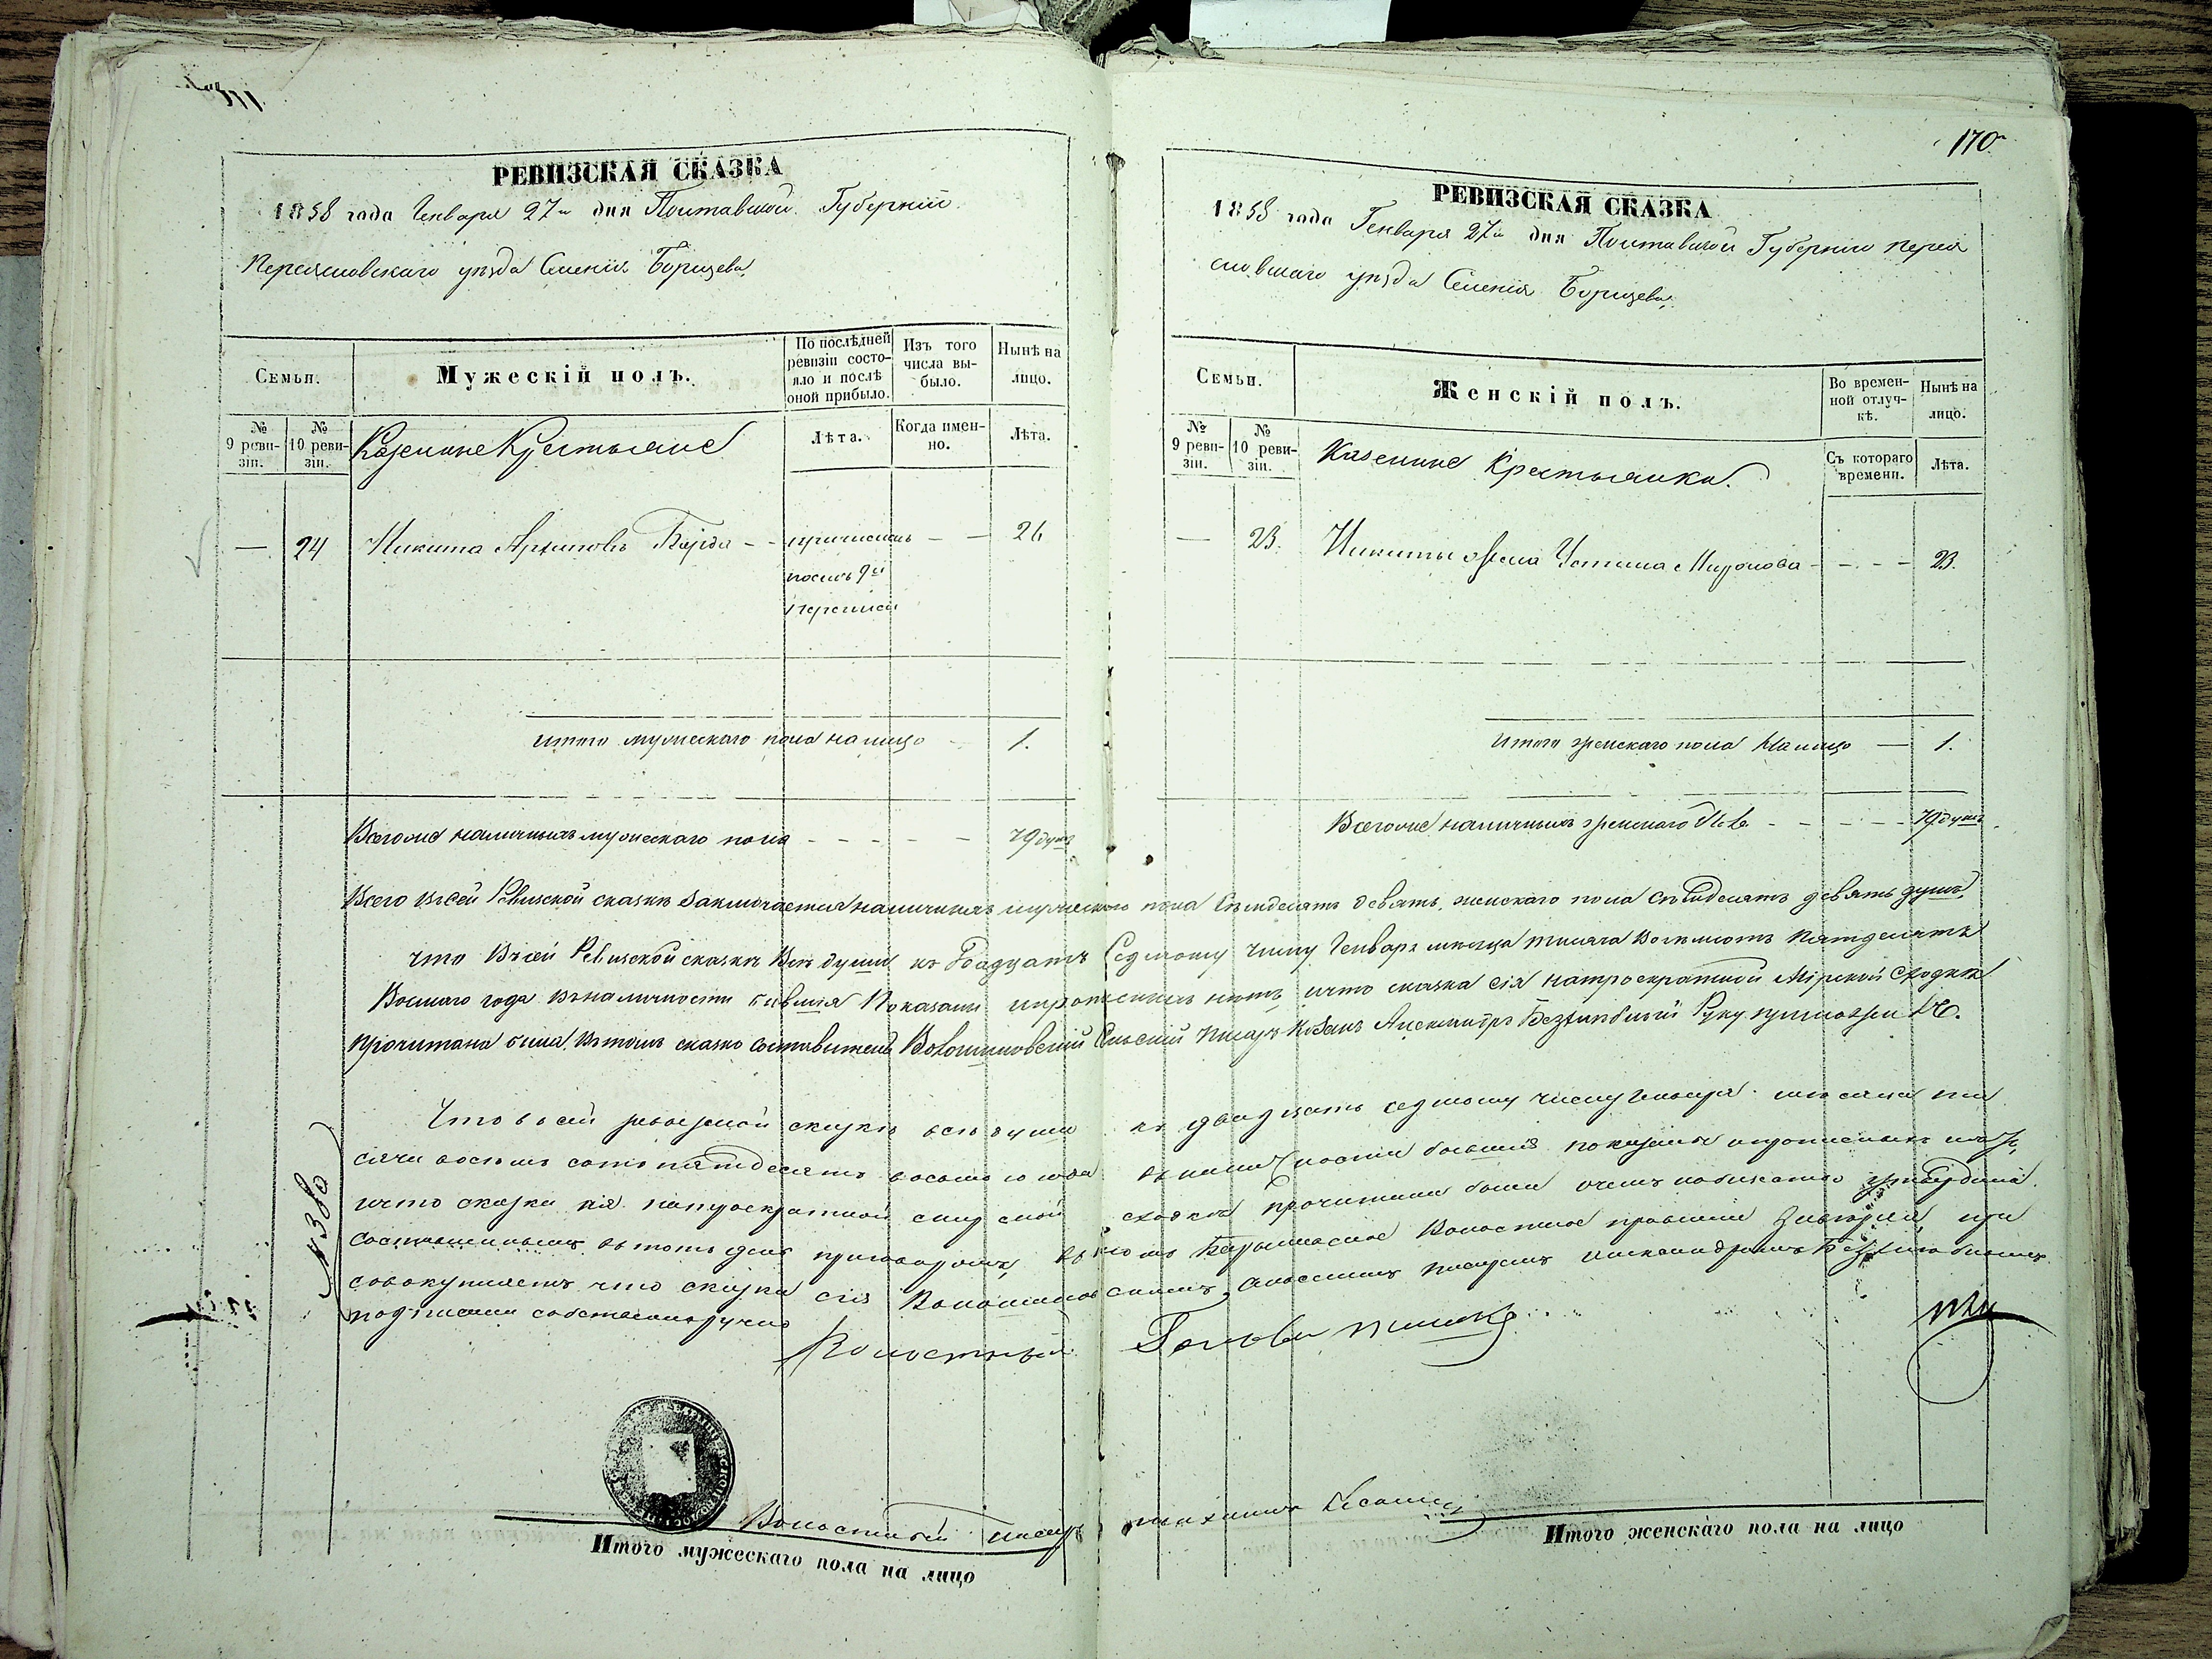 170
РЕВИЗСКАЯ СКАЗКА
1858 года Генваря 27го дня Полтавской Губерніи
Переясловскаго уѣзда Селенія Борщева
Семьи.
Мужескій полъ.
По послѣдней ревизіи состояло и послѣ оной прибыло.
Изъ того числа выбыло.
Нынѣ на лицо.
№ 9 ревизіи.
№ 10 ревизіи.
Казенные Крестьяне
Лѣта.
Когда именно.
Лѣта.
— 24 Никита Архиповъ - - причисленъ - - 26
послѣ 9й
переписи
итого мужескаго пола на лицо - 1.
Всегоже наличныхъ мужескаго пола - - - - - 79 душъ
РЕВИЗСКАЯ СКАЗКА
1858 года Генваря 27го дня Полтавской Губерніи Перея
словскаго уѣзда Селенія Борщева
Семьи.
Женскій полъ.
Во временной отлучкѣ.
Нынѣ на лицо.
№ 9 ревизіи.
№ 10 ревизіи.
Казенные Крестьянки.
Съ котораго времени.
Лѣта.
— 23. Никиты жена Устина Миронова - - - - 23.
Итого женскаго пола На лицо — 1.
Всегоже наличныхъ женскаго пола - - - - - 79 душъ
Всего въ сей Ревизской сказкѣ заключается наличныхъ мужескаго пола семдесятъ девять, женскаго пола семдесятъ девять душъ,
что Въ сей Ревизской сказкѣ Всѣ души къ двадцать Седьмому числу Генваря месяца тысяча восемьсотъ пятдесятъ
Восмаго года въ наличности бывшія Показаны и прописныхъ нѣтъ, и что сказка сія на троекратной Мірской сходкѣ
прочитана была. Въ томъ сказко составитель Волошиновскій Сельскій Писарь Козакъ Александръ Руку приложилъ
№ 380
Что въ сей ревизской сказкѣ всѣ души къ двадцать седьмому числу Генваря месяца ты
сяча восемь сотъ пятдесятъ восьмого года въ наличности бывшія показаны и прописныхъ нѣтъ,
и что сказка сія на троекратной сходкѣ прочитана была
составленнымъ въ тотъ день приговоромъ, въ томъ Волостное правленіе при
совокупляетъ что сказка сія Волошиновскимъ сельскимъ писаремъ Александромъ
подписана собственноручно
Волостный Голова
Волостный писарь
Итого мужескаго пола на лицо
Итого женскаго пола на лицо